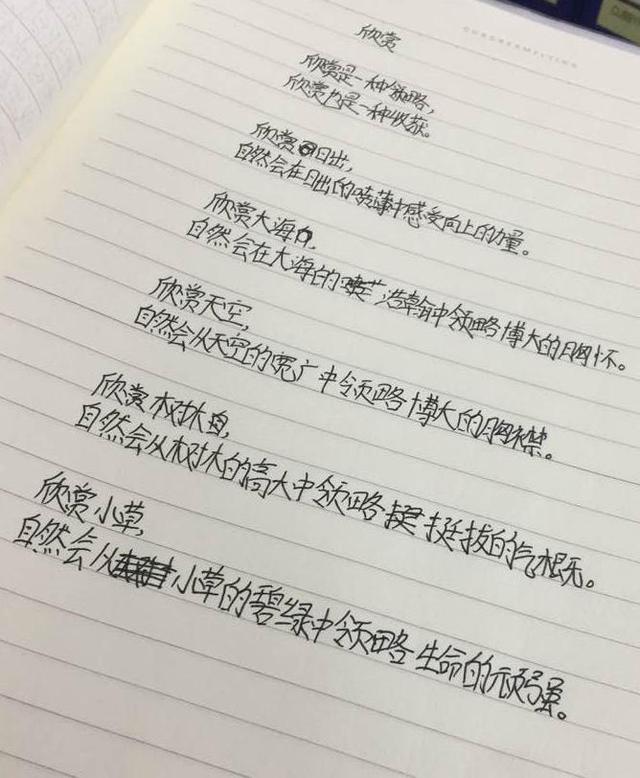 欣赏
欣赏是一种领略,
欣赏也是一种收获。
欣赏日出,
自然会在日出的喷薄中感受向上的力量。
欣赏大海,
自然会在大海的浩瀚中领略博大的胸怀。
欣赏天空,
自然会从天空的宽广中领略博大的胸襟。
欣赏树木,
自然会从树木的高大中领略挺拔的气概。
欣赏小草,
自然会从小草的碧绿中领略生命的顽强。